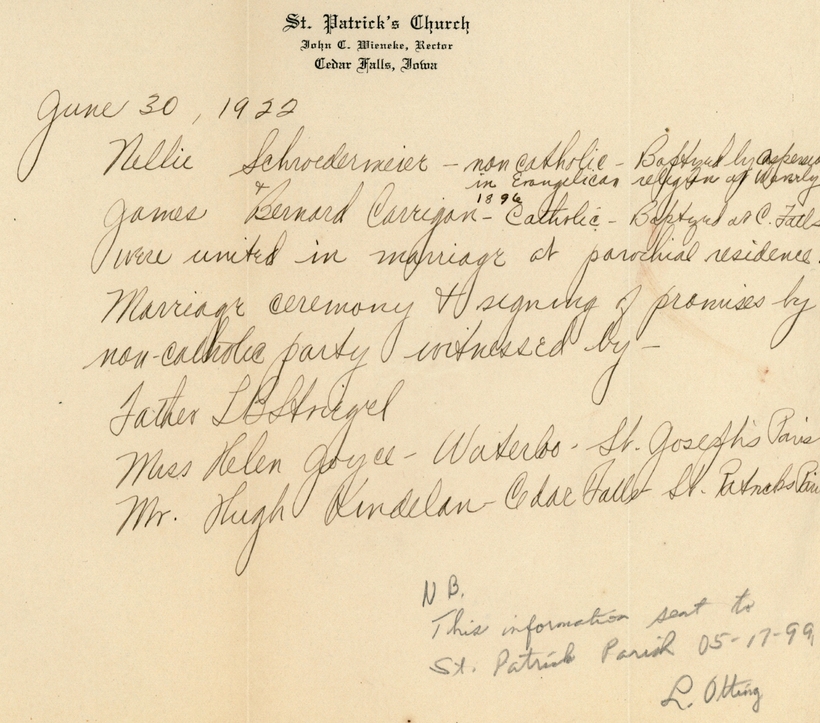 St. Patrick's Church
John C. Wieneke, Rector
Cedar Falls, Iowa
June 30, 1922
Nellie Schroedermeier - non catholic - Baptyzed by aspersion
in Evangelican religion at Waverly
& 1896
James Bernard Carrigan - Catholic - Baptyzed at C. Falls
were united in marriage at parochial residence.
Marriage ceremony & signing of promises by
non-catholic party witnessed by -
Father L B Striegel
Miss Helen Joyce - Waterloo - St. Joseph's Paris
Mr. Hugh Kindelan - Cedar Falls St. Patricks Par
N B.
This information sent to
St. Patrick Parish 05-17-99,
L. Otting